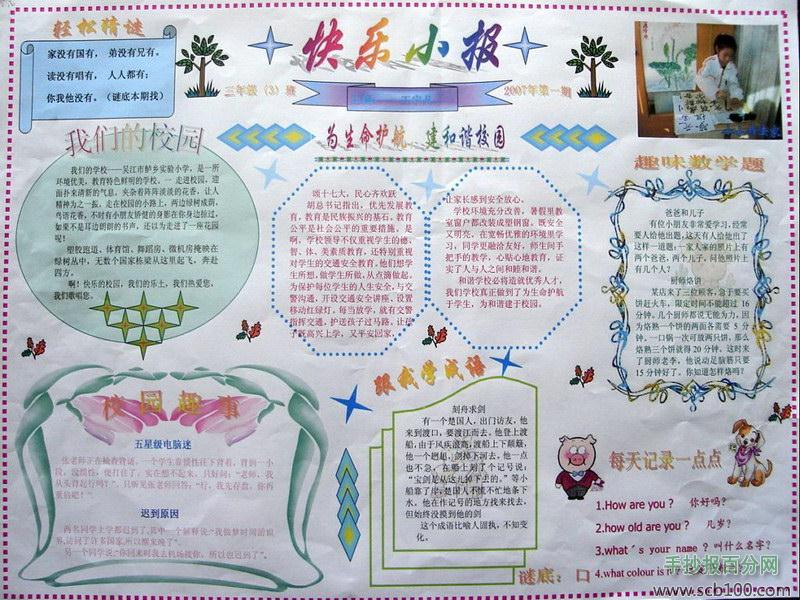 轻松猜谜
家没有国有， 弟没有兄有。
读没有唱有， 人人都有；
你我他没有。（谜底本期找）
快乐小报
三年级（3）班
2007年第一期
我们的校园
我们的学校——吴江市鲈乡实验小学，是一所
环境优美，教育特色鲜明的学校。一走进校园，迎
面扑来清新的气息，夹杂着阵阵淡淡的花香，让人
精神为之一振，走在校园的小路上，两边绿树成荫，
鸟语花香，不时有小朋友矫健的身影在你身边掠过，
如果不是耳边朗朗的书声，还以为走进了一座花园
呢！
塑胶跑道、体育馆、舞蹈房、微机房掩映在
绿树丛中，无数个国家栋梁从这里起飞，奔赴
四方。
啊！快乐的校园，我们的乐土，我们热爱您，
我们歌唱您。
为生命护航、建和谐校园
颂十七大，民心齐欢跃
胡总书记指出，优先发展教
育，教育是民族振兴的基石，教育
公平是社会公平的重要措施。是
啊，学校领导不仅重视学生的德、
智、体、美素质教育，还特别重视
对学生的交通安全教育，他们想学
生所想，做学生所做，从点滴做起。
为保护每位学生的人生安全，与交
警沟通，开设交通安全讲座，设置
移动红绿灯。每当放学，就有交警
指挥交通，护送孩子过马路，让孩
子既高兴上学，又平安回家，
让家长感到安全放心。
学校环境充分改善，暑假里教
室窗户都改装成塑钢窗，既安全
又明亮。在宽畅优雅的环境里学
习，同学更融洽友好，师生间手
把手的教学，心贴心地教育，证
实了人与人之间和睦和谐。
和谐学校必将造就优秀人才，
我们学校真正做到了为生命护航
于学生，为和谐建于校园。
趣味数学题
爸爸和儿子
有位小朋友非常爱学习，经常
要人给他出题，这天有人给他出了
这样一道题：一家人家的照片上有
两个爸爸，两个儿子。问他照片上
有几个人？
厨师烙饼
某店来了三位顾客，急于要买
饼赶火车，限定时间不能超过 16
分钟。几个厨师都说无能为力，因
为烙熟一个饼的两面各需要 5 分
钟，一口锅一次可放两只饼，那么
烙熟三个饼就得 20 分钟。这时来
了厨师老李，他说动足脑筋只要
15 分钟好了。你知道怎样烙吗？
校园趣事
五星级电脑迷
张老师正在检查背诵，一个学生靠惯性往下背着，背到一小
段，没惯性，便打住了，实在想不起来，只好问：“老师，我
从头背起行吗？”，只听见张老师回答：“行，我先存盘，你再
重启吧！”
迟到原因
两名同学上学都迟到了，其中一个解释说：“我做梦时周游世
界，访问了许多国家，所以醒来晚了”。
另一个同学说：“你回来时我去机场接你，所以也迟到了”。
跟我学成语
刻舟求剑
有一个是国人，出门访友，他
来到渡口，要渡江而去。他登上渡
船，由于风疾浪高，渡船上下颠簸，
他一个趔趄，剑掉下河去。他一点
也不急，在船上刻了个记号说：
“宝剑是从这儿掉下去的。”等小
船靠了岸，是国人不慌不忙地条下
水，他在作记号的地方找来找去，
但始终没摸到他的剑
这个成语比喻人固执，不知变
化。
谜底： 口
每天记录一点点
1.How are you？ 你好吗？
2.how old are you？ 几岁？
3.what´s your name？叫什么名字？
4.what colour is
手抄报百分网
www.scb100.com